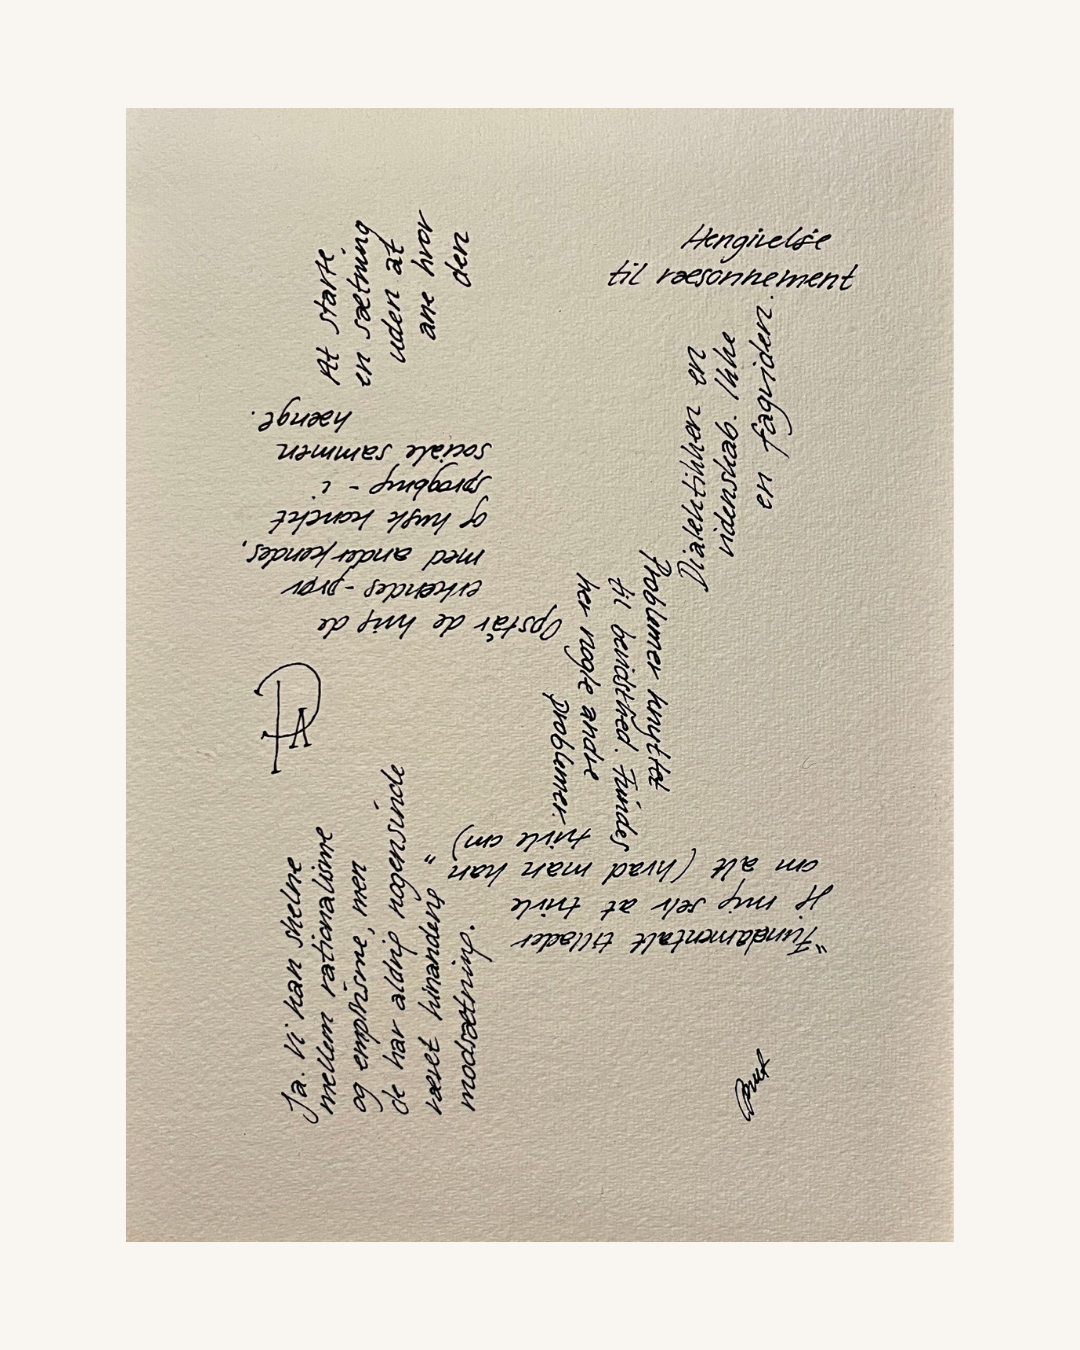 Hengivelse
til ræsonnement
Dialektikken en
videnskab. Ikke
en fagviden.
Problemer knyttet
til bevidsthed. Findes
her nogle andre
problemer.
"Fundamentalt tillader
jeg mig selv at tvivle
om alt (hvad man kan
tvivle om)"
At starte
en sætning
uden at
ane hvor
den
Opstår de ting de
erkendes - prøv
med anderkendes,
og husk hændet
sprogbrug - i
sociale sammen
hænge.
Ja. Vi kan skelne
mellem rationalisme
og empirisme, men
de har aldrig nogensinde
været hinandens
modsætning.